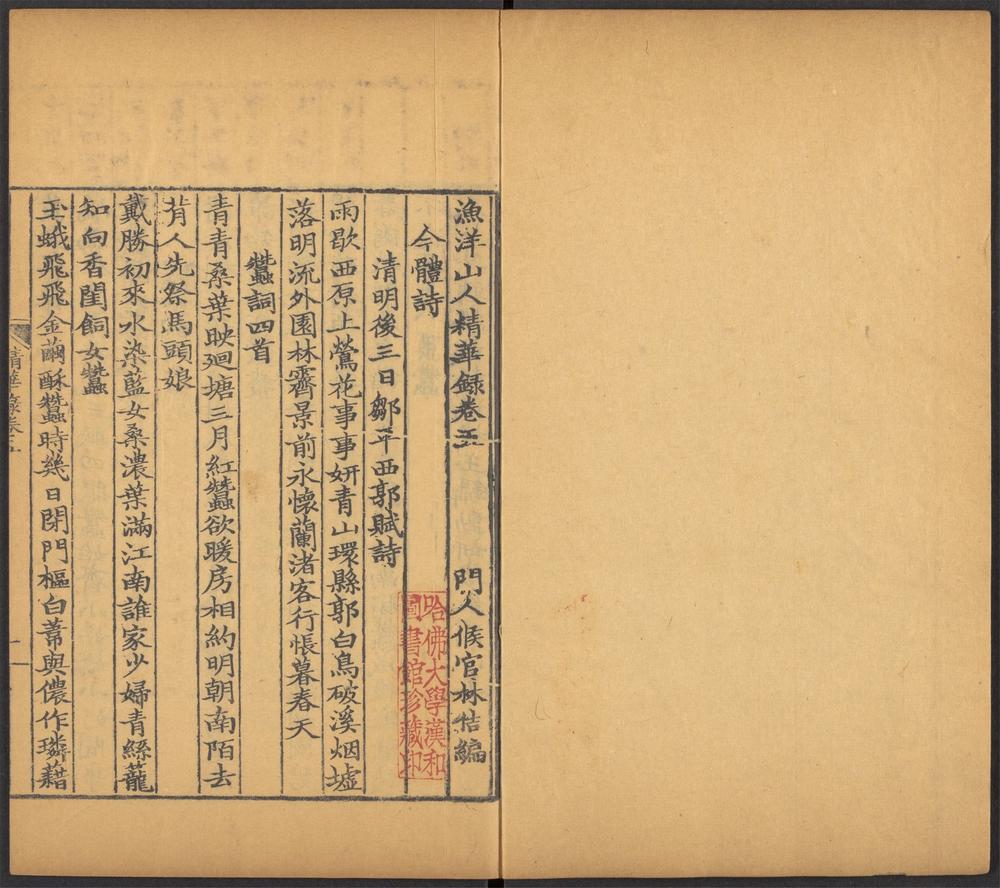 漁洋山人精華録卷五 門人侯官林佶編
今體詩
清明後三日鄒平西郭賦詩
雨歇西原上鶯花事事妍青山環縣郭白鳥破溪烟墟
落明流外園林霽景前永懷蘭渚客行悵暮春天
蠶詞四首
青青桑葉映廻塘三月紅蠶欲暖房相約明朝南陌去
背人先祭馬頭娘
戴勝初來水染藍女桑濃葉滿江南誰家少婦青絲籠
知向香閨飼女蠶
玉蛾飛飛金繭酥蠶時幾日閉門樞白葦與儂作璘藉
精華録卷五
一
哈佛大學漢和
圖書館珍藏印